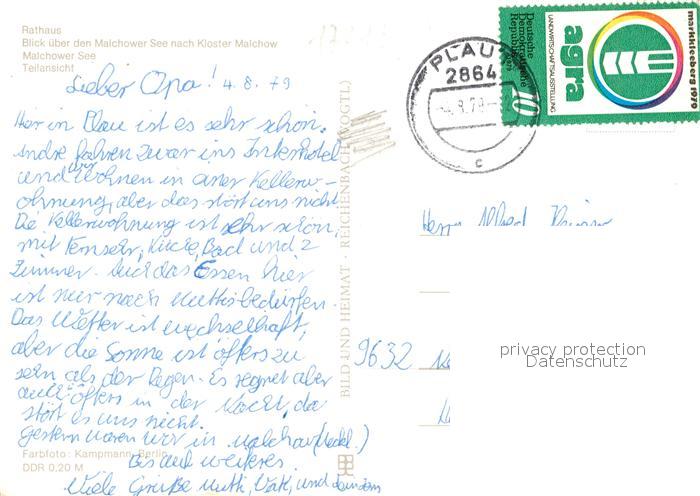 Rathaus
Blick über den Malchower See nach Kloster Malchow
Malchower See
Teilansicht
Lieber Opa! 4.8.79
Hier in Plau ist es sehr schön.
Andre fahren zwar ins Interhotel
und wir wohnen in einer Kellerw-
ohnung, aber das stört uns nicht
Die Kellerwohnung ist sehr schön,
mit Fernseh, Küche, Bad und 2
Zimmer. Auch das Essen hier
ist nur nach Muttis bedürfen.
Das Wetter ist wechselhaft,
aber die Sonne ist öfters zu
sehn als der Regen. Es regnet aber
auch öfters in der Nacht, da
stört es uns nicht.
Gestern waren wir in Malchow (Meckl.)
Bis auf weiteres.
Viele Grüße Mutti, Vati, und
Farbfoto: Kampmann, Berlin
DDR 0,20 M
BILD UND HEIMAT · REICHENBACH (VOGTL)
PLAU
2864
-4.8.79-
c
Deutsche
Demokratische
Republik
10
LANDWIRTSCHAFTSAUSSTELLUNG
agra
markkleeberg 1979
Herrn Alfred
9632
privacy protection
Datenschutz